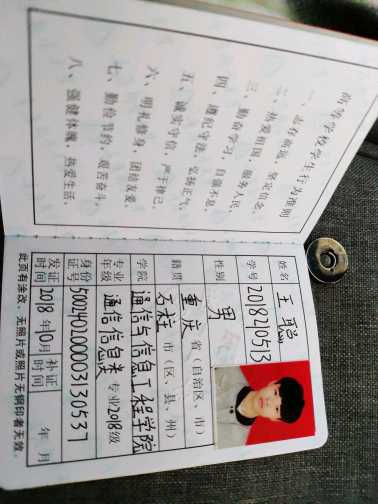 高等学校学生行为准则
一、志存高远，坚定信念。
二、热爱祖国，服务人民。
三、勤奋学习，自强不息。
四、遵纪守法，弘扬正气。
五、诚实守信，严于律己。
六、明礼修身，团结友爱。
七、勤俭节约，艰苦奋斗。
八、强健体魄，热爱生活。
姓名 王聪
学号 2018210513
性别 男
籍贯 重庆 省（自治区、市）
石柱 市（区、县、州）
学院 通信与信息工程学院
专业年级 通信信息类 专业2018级
身份证号 500240200003130537
发证时间 2018年10月 补证时间 年 月
此页有涂改、无照片或照片无钢印者无效。